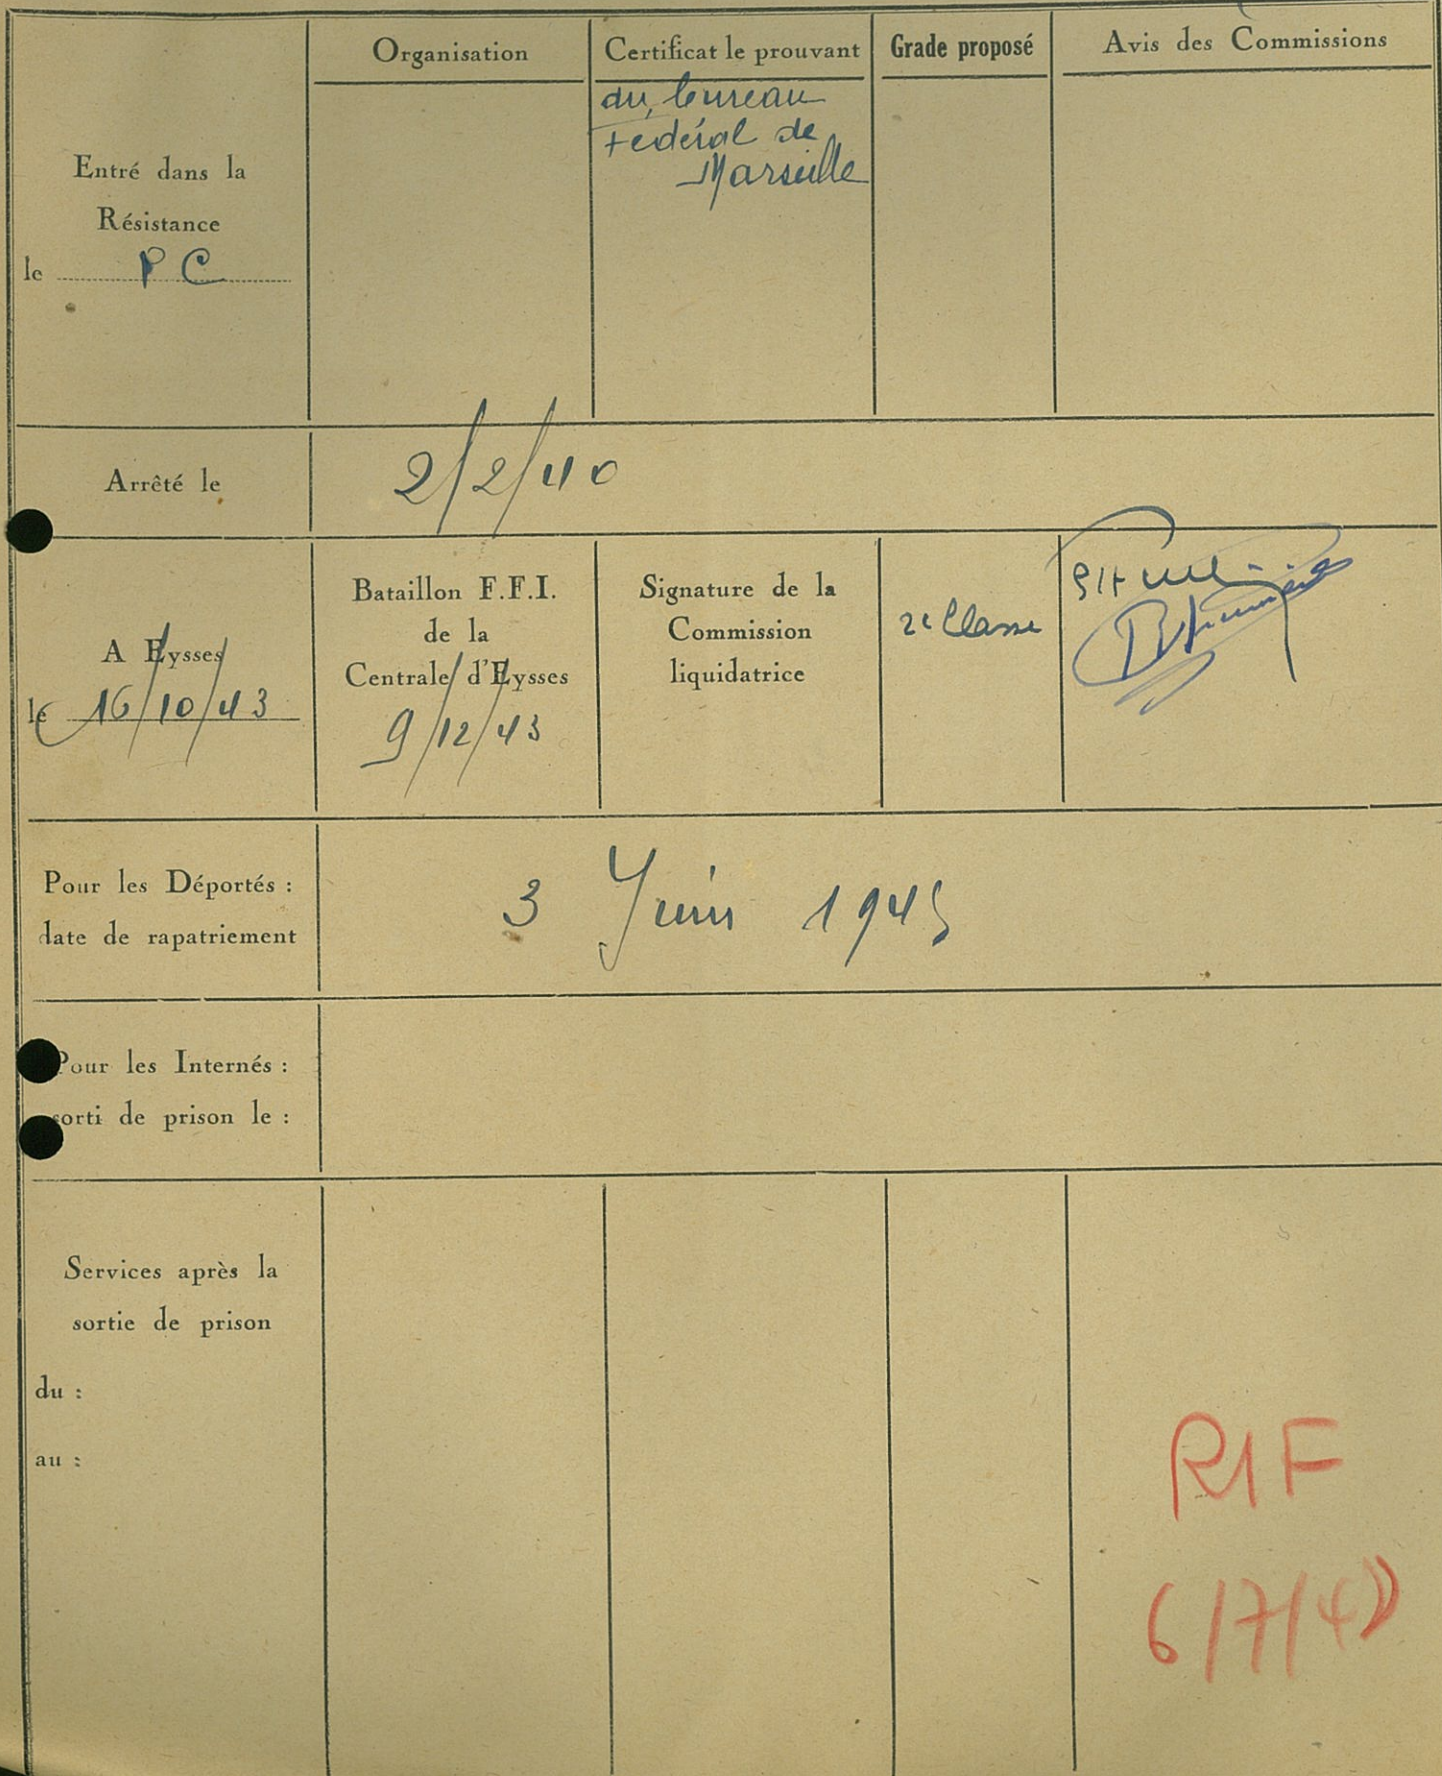 Organisation
Certificat le prouvant
Grade proposé
Avis des Commissions
Entré dans la
Résistance
le P C
du bureau
Fédéral de
Marseille
Arrêté le
2/2/40
A Eysses
le 16/10/43
Bataillon F.F.I.
de la
Centrale d'Eysses
9/12/43
Signature de la
Commission
liquidatrice
2e Classe
Pour les Déportés :
date de rapatriement
3 Juin 1945
Pour les Internés :
sorti de prison le :
Services après la
sortie de prison
du :
au :
R1F
6/7/4